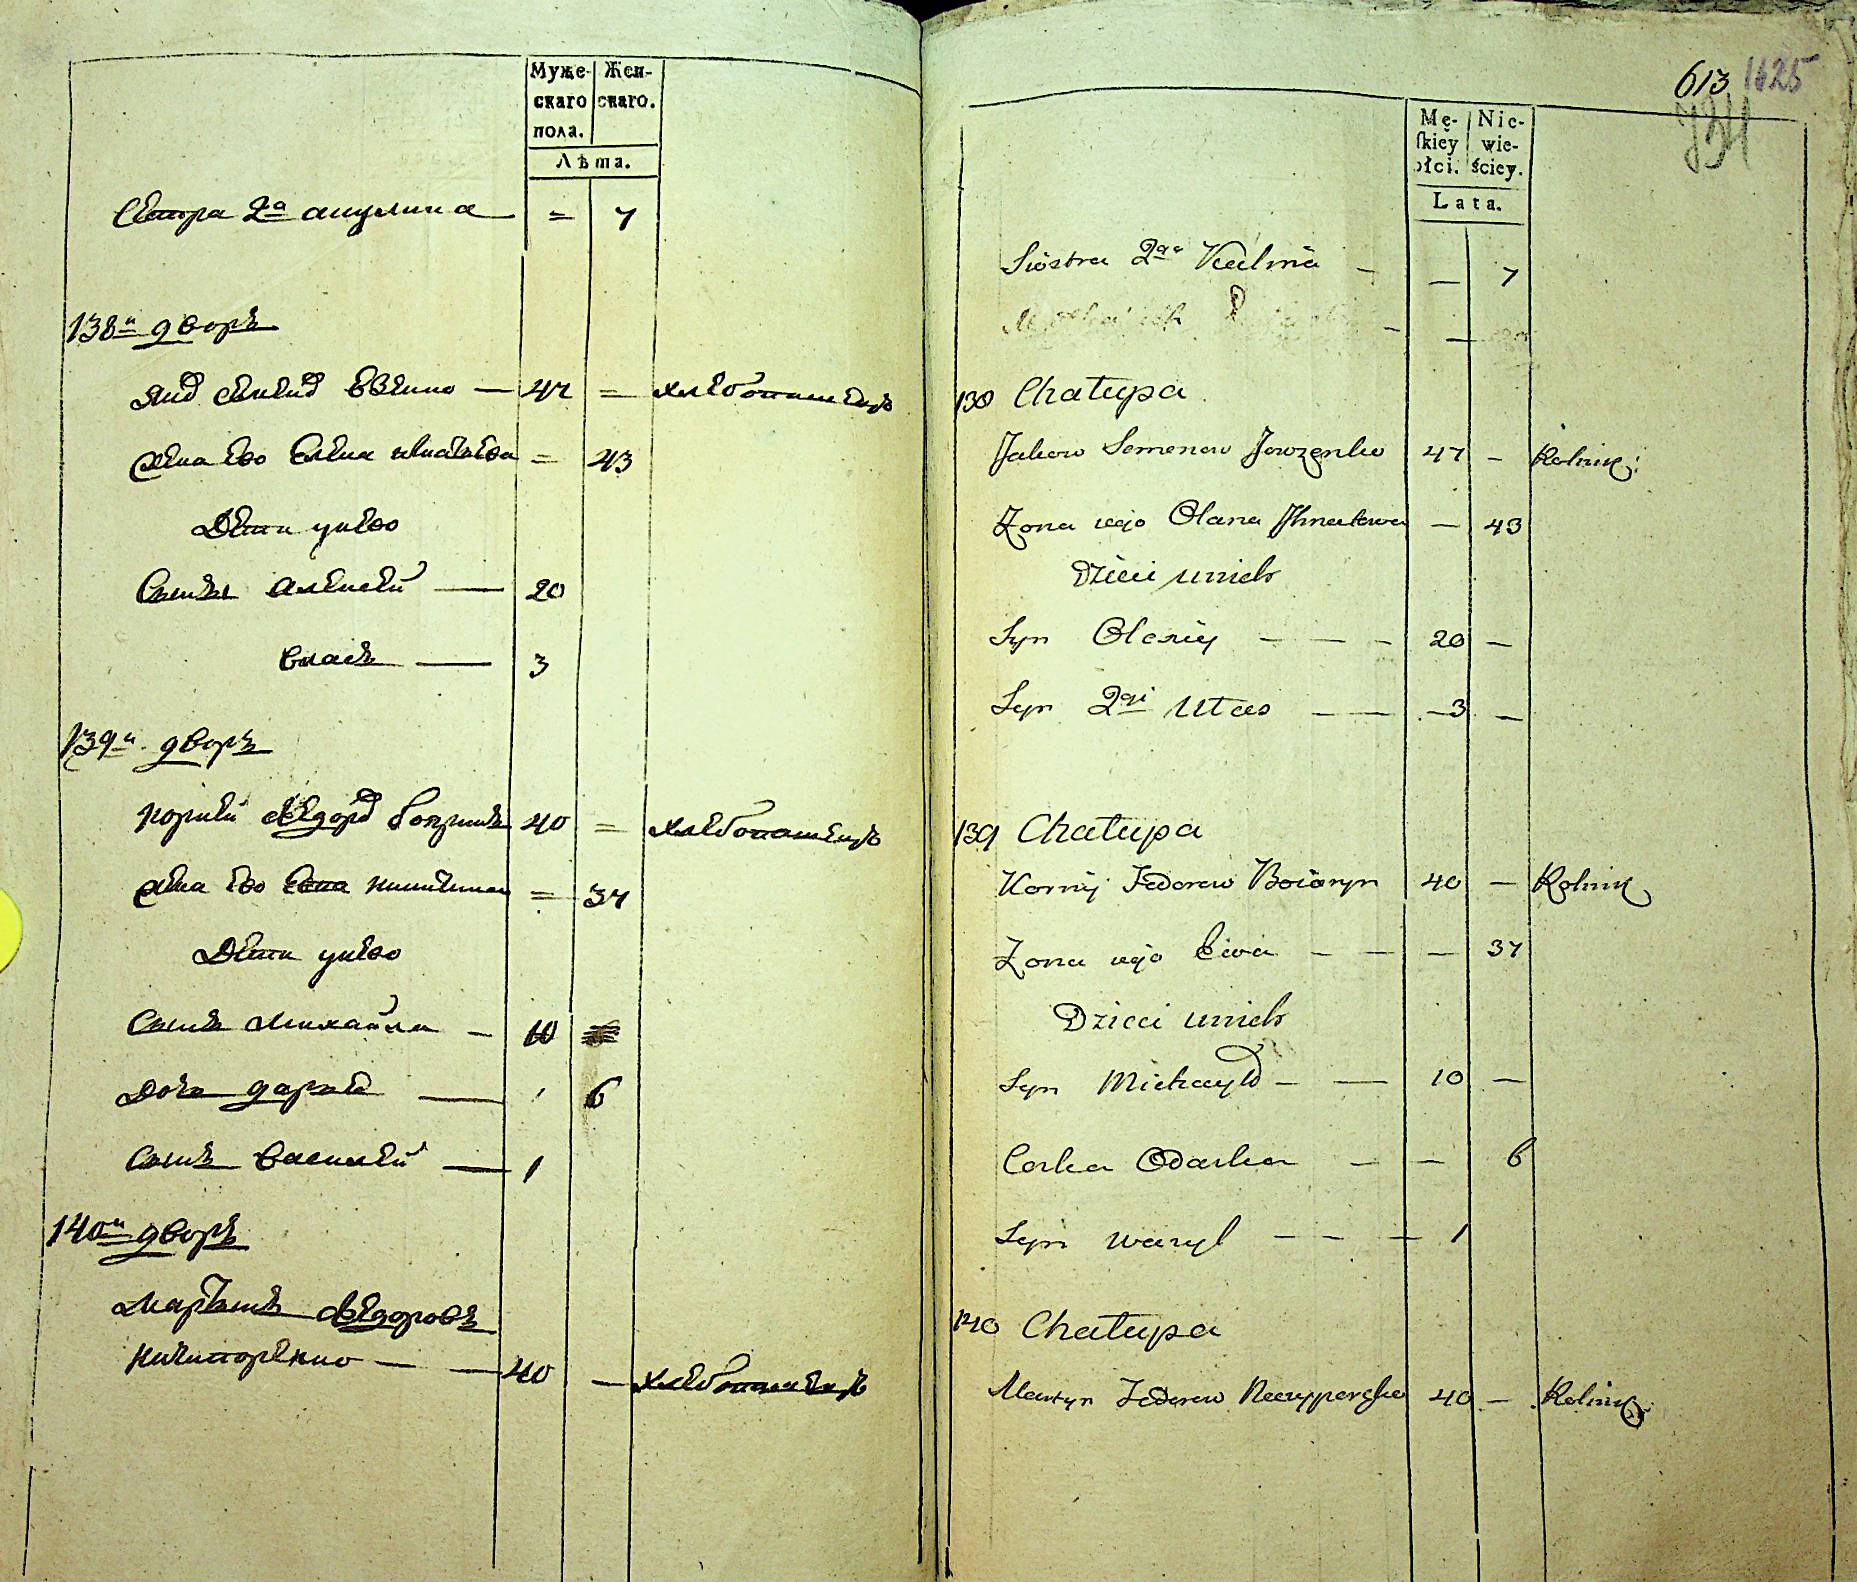 Муже-
скаго
пола.
Жен-
скаго.
Лѣта.
Сестра 2а акулина = 7
138й дворъ
47 = хлебопашецъ
жена ево Елена игнатьева = 43
Дети унево
Сынъ Алексей — 20
Власъ — 3
139й дворъ
Корней Федоровъ Бояринъ 40 = хлебопашецъ
жена ево Ева = 37
Дети унево
Сынъ Михайла — 10
Дочь дарья — 6
Сынъ Василей — 1
140й дворъ
Мартынъ Федоровъ
Ничипоренко — — 40 — хлебопашецъ
613 1625
Mę-
skiey
płci.
Nie-
wie-
ściey.
Lata.
Siostra 2ga Kulina — — 7
138 Chałupa
Jakow Semenow Jowzenko 47 — Rolnik
Zona iego Olana Ihnatowa — 43
Dzieci unich
Syn Olexiy — — — 20 —
Syn 2gi Ułas — — — 3 —
139 Chałupa
Korniy Fedorow Boiaryn 40 — Rolnik
Zona iego Ewa — — — 37
Dzieci unich
Syn Michayło — — 10 —
Corka Odarka — — 6
Syn Wasyl — — — 1
140 Chałupa
Martyn Fedorow Neczyporenko 40 — Rolnik